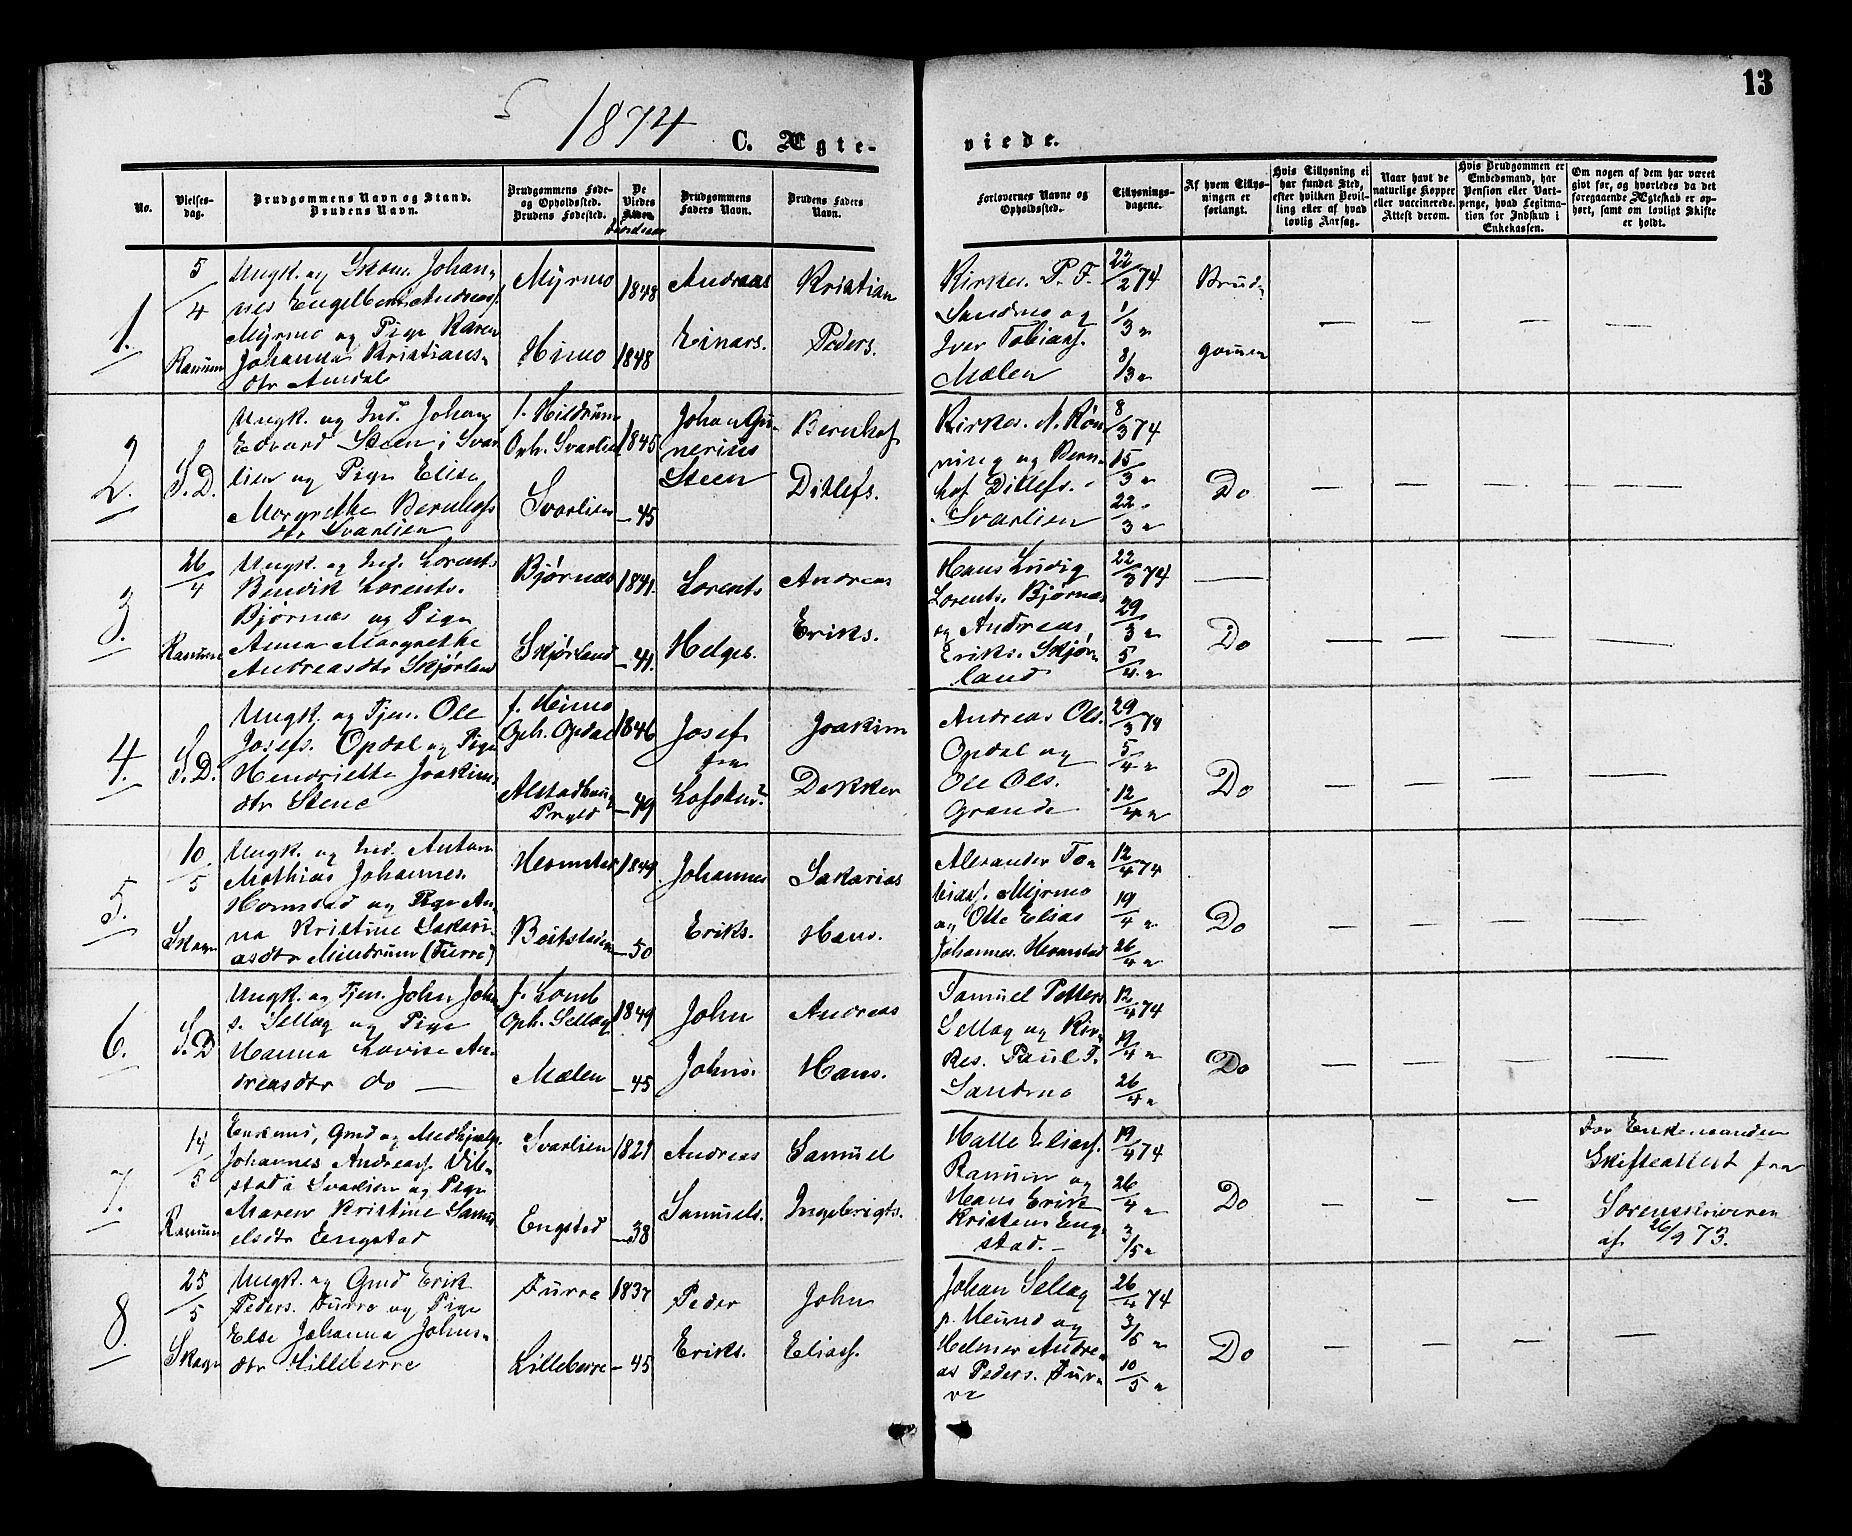 13
1874
C. Ægte-
viede.
No.
Vielses-
dag.
Brudgommens Navn og Stand.
Brudens Navn.
Brudgommens Føde-
og Opholdssted.
Brudens Fødested.
De
Viedes
Alder.
Fødselsaar
Brudgommens
Faders Navn.
Brudens Faders
Navn.
Forlovernes Navne og
Opholdssted.
Tillysnings-
dagene.
Af hvem Tillys-
ningen er
forlangt.
Hvis Tillysning ei
har fundet Sted,
efter hvilken Bevil-
ling eller af hvad
lovlig Aarsag.
Naar havt de
naturlige Kopper
eller vaccinerede.
Attest derom.
Hvis Brudgommen er
Embedsmand, har
Pension eller Vart-
penge, hvad Legitma-
tion for Indskud i
Enkekassen.
Om nogen af dem har været
gift før, og hvorledes da det
foregaaende Ægteskab er op-
hørt, samt om lovligt Skifte
er holdt.
1.
5/4
Ranum
Ungk. og Skom. Johan-
nes Engelbert Andreass.
Myrmo og Pige Karen
Johanna Kristians-
dtr Amdal
Myrmo
Himo
1848
1848
Andreas
Einars.
Kristian
Peders.
Kirkes. P. F.
Sandmo og
Iver Tobiass.
Mælen
22/2 74
1/3 "
8/3 "
Brud-
gommen
2.
S.D.
Ungk. og Ind. Johan
Edvard Steen i Svar-
lien og Pige Elise
Margrethe Bernhofs
dtr Svarlien
f. Hildrum
Oph. Svarlien
Svarlien
1845
— 45
Johan Gu-
nerius
Steen
Bernhof
Ditlefs.
Kirkes. N. Røn-
ning og Bern-
hof Ditlefs.
Svarlien
8/3 74
15/3 "
22/3 "
Do
3.
26/4
Ranum
Ungk. og Ind. Lorents
Bendik Lorents.
Bjørnæs og Pige
Anna Margrethe
Andreasdtr Skjørland
Bjørnæs
Skjørland
1841.
— 41.
Lorents
Helges.
Andreas
Eriks.
Hans Ludig
Lorents. Bjørnæs
og Andreas
Eriks. Skjør-
land
22/3 74
29/3 "
5/4 "
Do
4.
S.D.
Ungk. og Tjen. Ole
Josefs. Opdal og Pige
Henriette Joakims-
dtr Stene
f. Himo
Oph. Opdal
Alstadhaug
Prgld
1846
— 49
Josef
fra
Joakim
Dekker
Andreas Ols.
Opdal og
Ole Ols.
Grande
29/3 74
5/4 "
12/4 "
Do
5.
10/5
Skage
Ungk. og Ind. Anton
Mathias Johannes.
Homstad og Pige An-
na Kristine Sakari-
asdtr Mindrum (Furre)
Homstad
Beitstaden
1849
— 50
Johannes
Eriks.
Sakarias
Hans.
Alexander To-
biass. Myrmo
og Otte Elias
Johannes. Homstad
12/4 74
19/4 "
26/4 "
Do
6.
S.D
Ungk. og Tjen. John John
s. Sellæg og Pige
Hanna Lovise An-
dreasdtr do —
f. Lomb
Oph. Sellæg
Mælen
1849
— 45
John
Johns.
Andreas
Hans.
Samuel Petters
Sellæg og Kir-
kes. Paul F.
Sandmo
12/4 74
19/4 "
26/4 "
Do
7.
14/5
Ranum
Enkemd, Gmd og Medhjælp.
Johannes Andreass. Vib-
stad i Svarlien og Pige
Maren Kristine Samu-
elsdtr Engstad
Svarlien
Engstad
1821
— 38
Andreas
Samuels.
Samuel
Ingebrigts.
Halle Eliass.
Ranum og
Hans Erik
Kristens. Eng-
stad. —
19/4 74
26/4 "
3/5 "
Do
For Enkemanden
Skifteattest fra
Sorenskriveren
af 26/9 73.
8.
25/5
Skage
Ungk. og Gmd Erik
Peders. Furre og Pige
Else Johanna Johns-
dtr Lilleberre
Furre
Lilleberre
1837
— 45
Peder
Eriks.
John
Eliass.
Johan Sellæg
p. Heund og
Helmer Andre-
as Peders. Fur-
re
26/4 74
3/5 "
10/5 "
Do